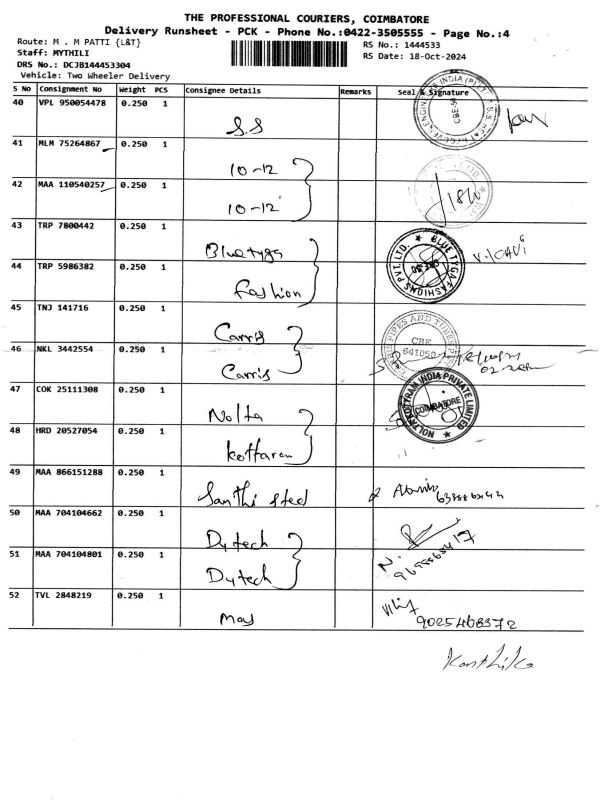 THE PROFESSIONAL COURIERS, COIMBATORE
Delivery Runsheet - PCK - Phone No.:0422-3505555 - Page No.:4
Route: M . M PATTI {L&T}
RS No.: 1444533
Staff: MYTHILI
RS Date: 18-Oct-2024
DRS No.: DCJB144453304
Vehicle: Two Wheeler Delivery
S No Consignment No Weight PCS Consignee Details Remarks Seal & Signature
40 VPL 950054478 0.250 1
S.S
41 MLM 75264867 0.250 1
10-12
42 MAA 110540257 0.250 1
10-12
43 TRP 7800442 0.250 1
Bluetyga
BLUE TYGA FASHIONS PVT. LTD.
44 TRP 5986382 0.250 1
Fashion
45 TNJ 141716 0.250 1
Carris
PIPES AND TUBES
CBE
641050
46 NKL 3442554 0.250 1
Carris
47 COK 25111308 0.250 1
Nolta
INDIA PRIVATE LIMITED
COIMBATORE
48 HRD 20527054 0.250 1
Kottaram
49 MAA 866151288 0.250 1
Santhi Steel
50 MAA 704104662 0.250 1
Dytech
51 MAA 704104801 0.250 1
Dytech
52 TVL 2848219 0.250 1
May
9025468372